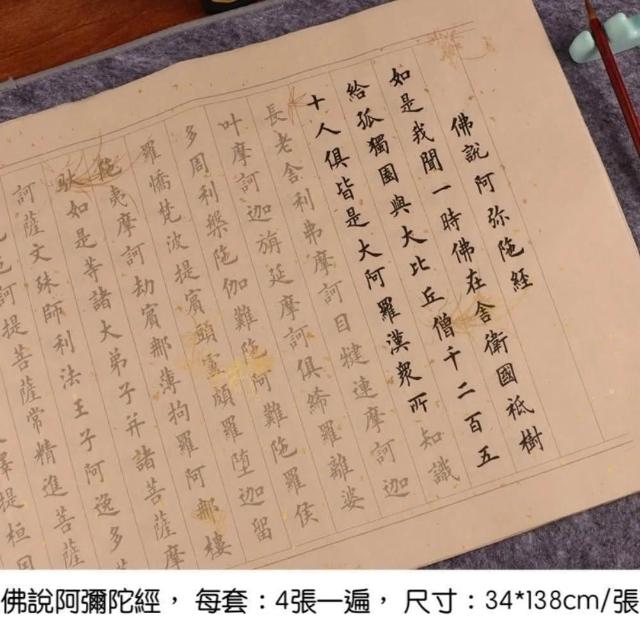 佛說阿弥陁經
如是我聞一時佛在舍衛國祗樹
給孤獨園與大比丘僧千二百五
十人俱皆是大阿羅漢衆所知識
長老舍利弗摩訶目犍連摩訶迦
叶摩訶迦旃延摩訶俱絺羅離婆
多周利槃陁伽難陁阿難陁羅侯
羅憍梵波提賓頭盧頗羅堕迦留
陁夷摩訶劫賓那薄拘羅阿那樓
馱如是等諸大弟子并諸菩薩摩
訶薩文殊師利法王子阿逸多菩
訶提菩薩常精進菩薩
提桓因
佛說阿彌陀經，每套：4張一遍，尺寸：34*138cm/張